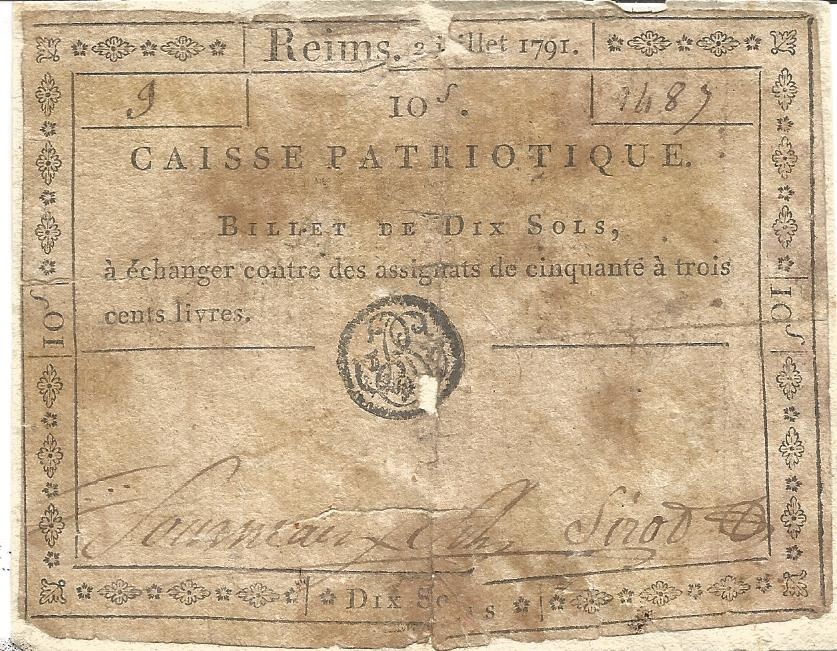 Reims. 2 juillet 1791.
9
10ˢ.
1487
CAISSE PATRIOTIQUE.
BILLET DE DIX SOLS,
à échanger contre des assignats de cinquante à trois
cents livres.
10ˢ
10ˢ
Sirot
DIX SOLS